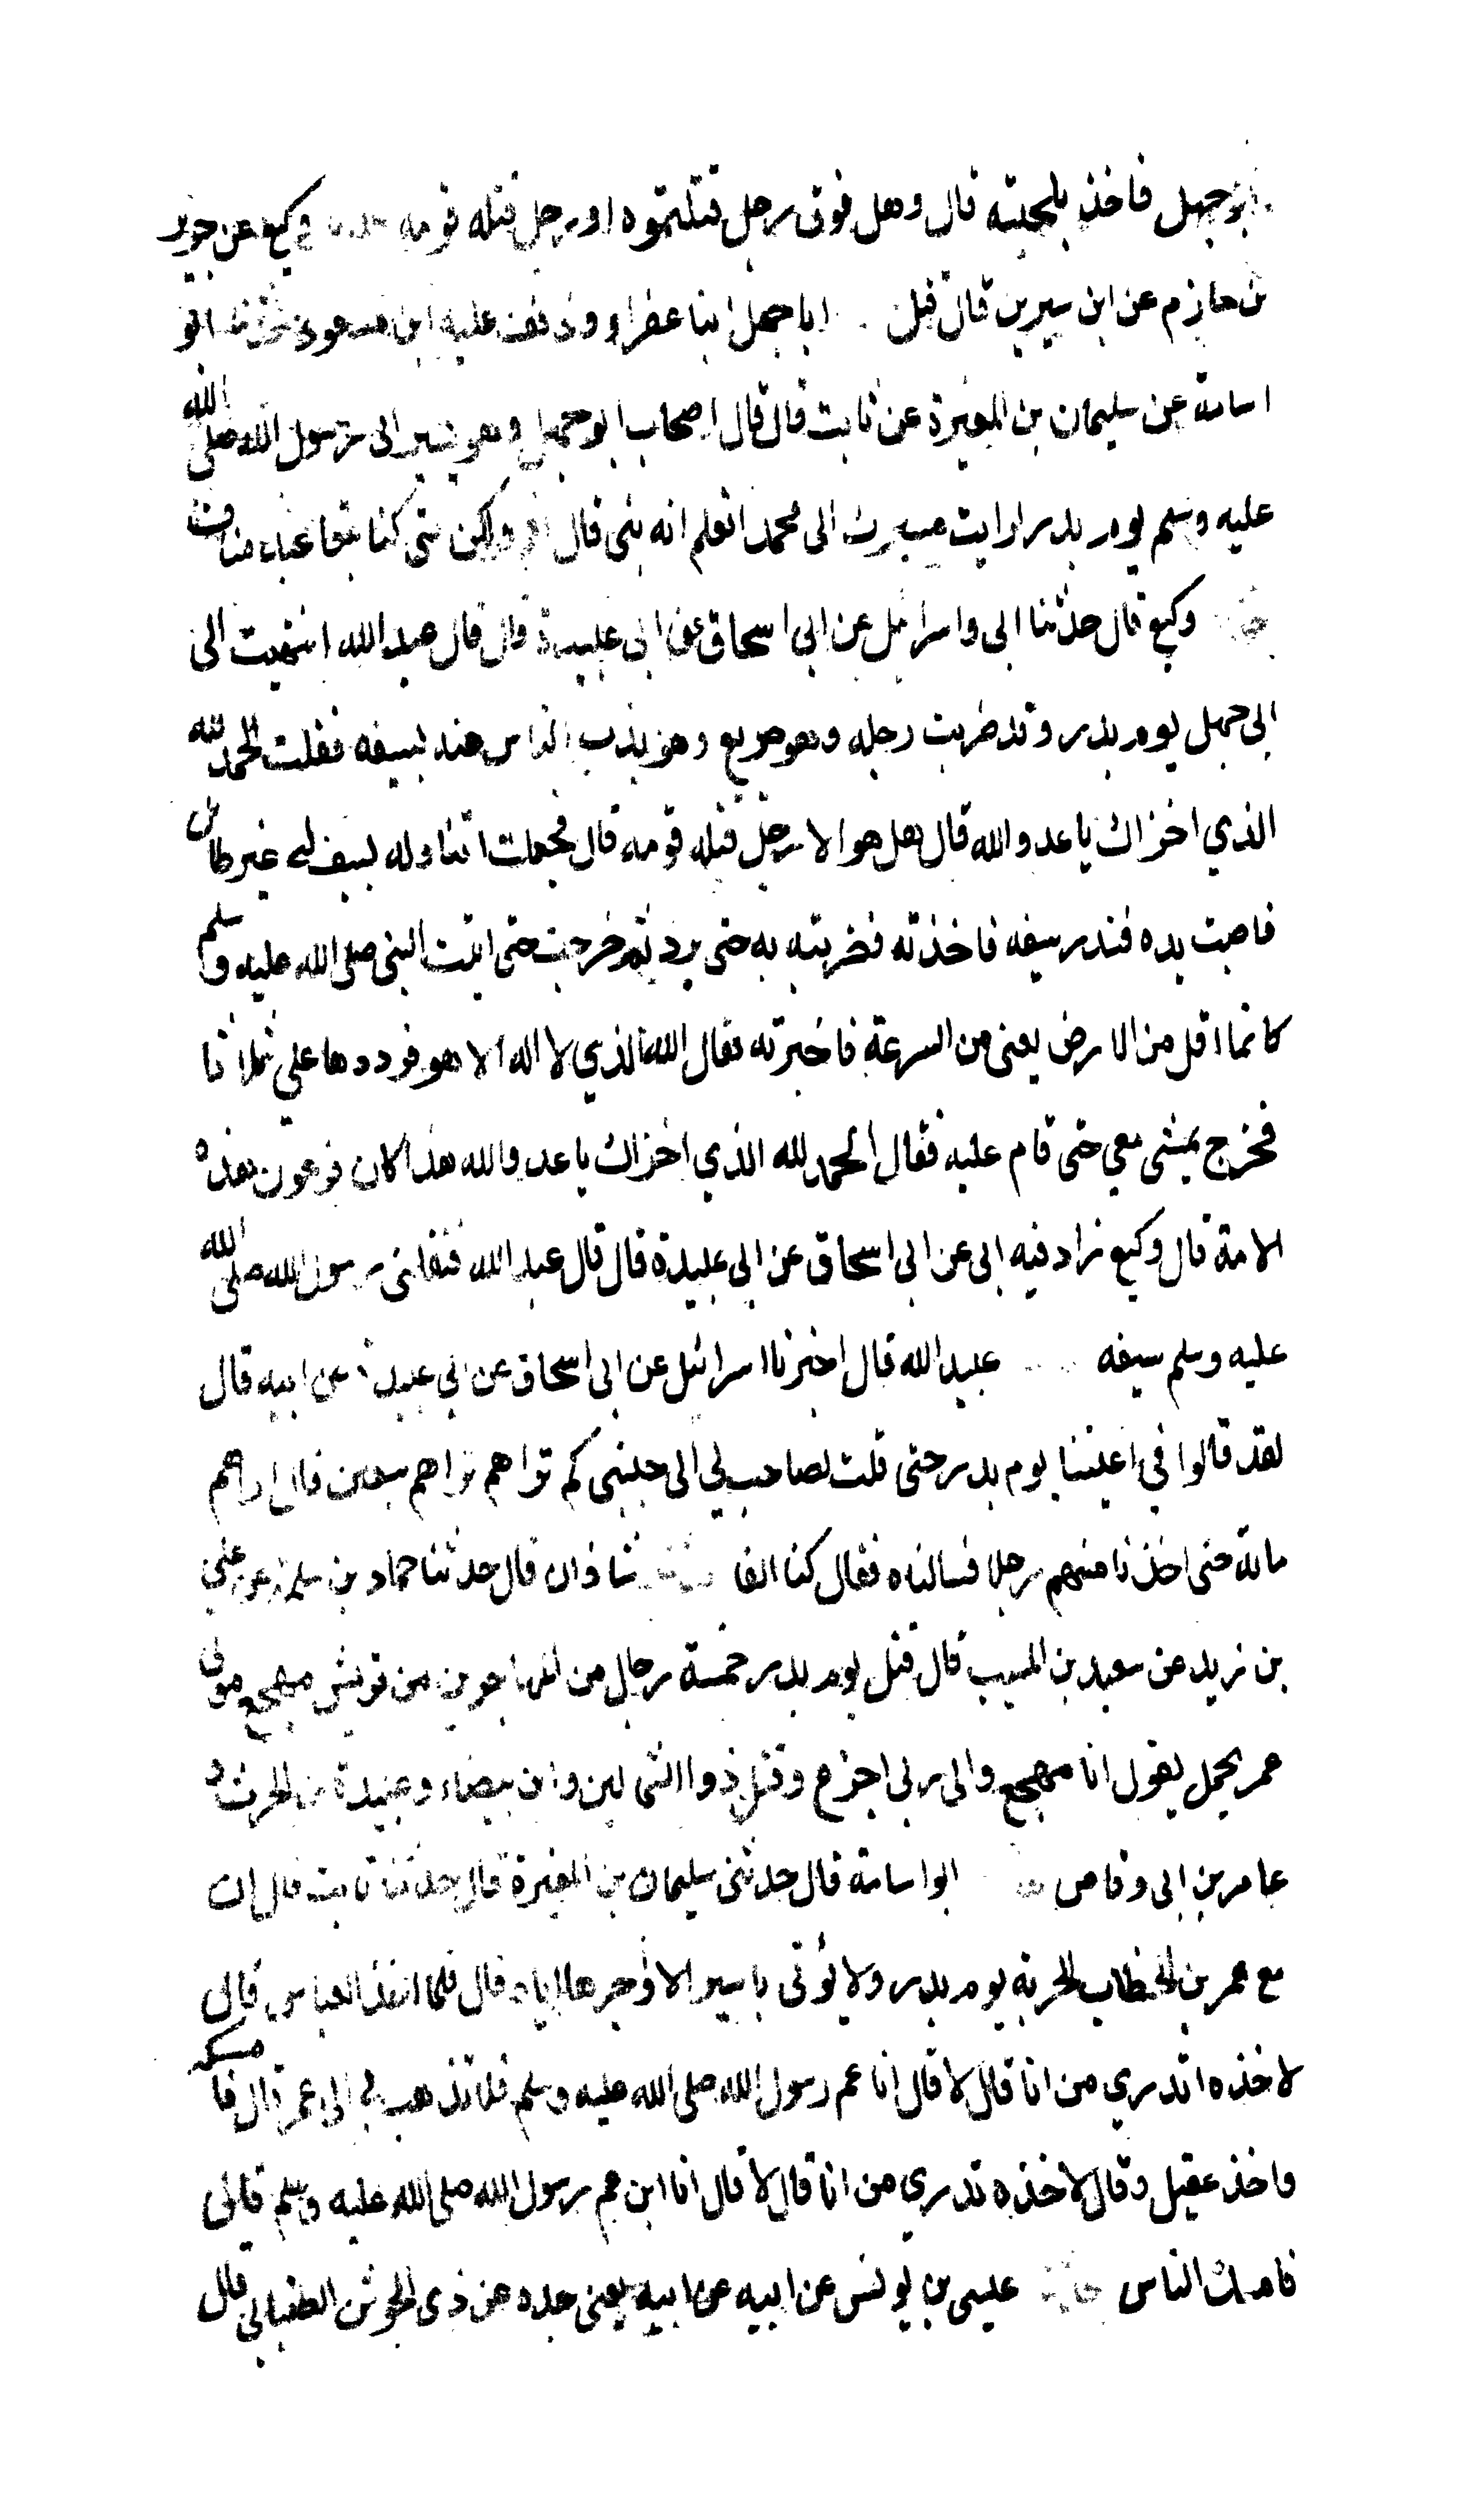 ابو جهل فاخذ بلحيته قال وهل فوق رجل قتلتموه او رجل قتله قومه حدثنا وكيع عن جرير
بن حازم عن ابن سيرين قال قبل ابا جهل ابنا عفراء وذفف عليه ابن مسعود حدثنا ابو
اسامة عن سليمان بن المغيرة عن ثابت قال قال اصحاب ابو جهل وهو يسير الى رسول الله صلى الله
عليه وسلم يوم بدر ارايت مسيرك الى محمد اتعلم انه نبى قال ولكن متى كنا تبعا عبد مناف
حدثنا وكيع قال حدثنا ابى واسرائيل عن ابى اسحاق عن ابى عبيدة قال قال عبد الله انتهيت الى
ابى جهل يوم بدر وقد ضربت رجله وهو صريع وهو يذب الناس عنه بسيفه فقلت الحمد لله
الذي اخزاك يا عدو الله قال هل هو الا رجل قتله قومه قال فجعلت اتناوله بسيف لي غير طائل
فاصبت يده فندر سيفه فاخذته فضربته به حتى برد ثم خرجت حتى اتيت النبى صلى الله عليه وسلم
كانما اقل من الارض يعنى من السرعة فاخبرته فقال الله الذي لا اله الا هو فرددها علي ثلاثا
فخرج يمشى معي حتى قام عليه فقال الحمد لله الذي اخزاك يا عدو الله هذا كان فرعون هذه
الامة قال وكيع زاد فيه ابى عن ابى اسحاق عن ابى عبيدة قال قال عبد الله فنفلنى رسول الله صلى الله
عليه وسلم سيفه عبيد الله قال اخبرنا اسرائيل عن ابى اسحاق عن ابي عبيدة عن ابيه قال
لقد قالوا في اعيننا يوم بدر حتى قلت لصاحب لي الى جنبى كم تراهم تراهم سبعين قال اراهم
مائة حتى اخذنا منهم رجلا فسالناه فقال كنا الفا حدثنا شاذان قال حدثنا حماد بن سلمة عن علي
بن زيد عن سعيد بن المسيب قال قتل يوم بدر خمسة رجال من المهاجرين من قريش مهجع مولى
عمر يحمل يقول انا مهجع والى ربى اجزع وقتل ذوا الشمالين وابن بيضاء وعبيدة بن الحرث و
عامر بن ابى وقاص حدثنا ابو اسامة قال حدثنى سليمان بن المغيرة قال حدثنا ثابت قال ان
مع عمر بن الخطاب الحربة يوم بدر ولا يؤتى باسير الا اوجرها اياه قال فلما اخذ العباس قال
لاخذه اتدري من انا قال لا قال انا عم رسول الله صلى الله عليه وسلم فلا تذهب بي الى عمر قال فامسكه
واخذ عقيل وقال لاخذه تدري من انا قال لا قال انا ابن عم رسول الله صلى الله عليه وسلم قال
فامسك الناس حدثنا عيسى بن يونس عن ابيه عن ابيه يعنى جده عن ذى الجوشن الضبابى قال